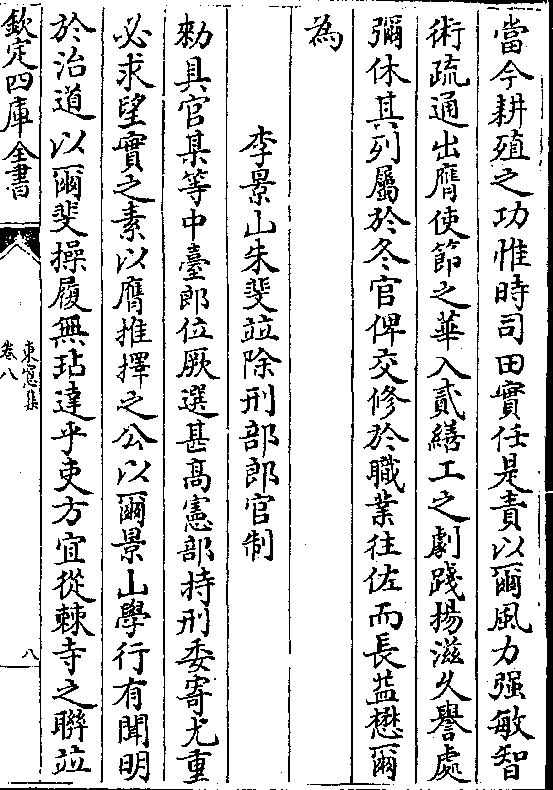 當今耕殖之功惟時司田實任是責以爾風力强敏智
術疏通出膺使節之華入貳繕工之劇踐揚滋久譽處
彌休其列屬於冬官俾交修於職業往佐而長益懋爾
為
李景山朱斐竝除刑部郎官制
勑具官某等中臺郎位厥選甚髙憲部持刑委寄尤重
必求望實之素以膺推擇之公以爾景山學行有聞明
於治道以爾斐操履無玷達乎吏方宜從棘寺之聯竝
欽定四庫全書
東窓集
卷八
八